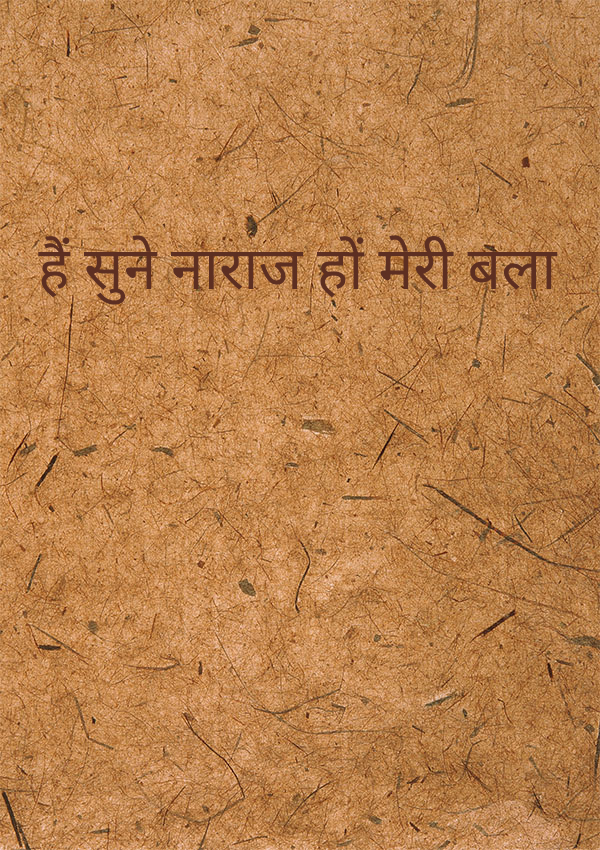 हैं सुने नाराज हों मेरी बला